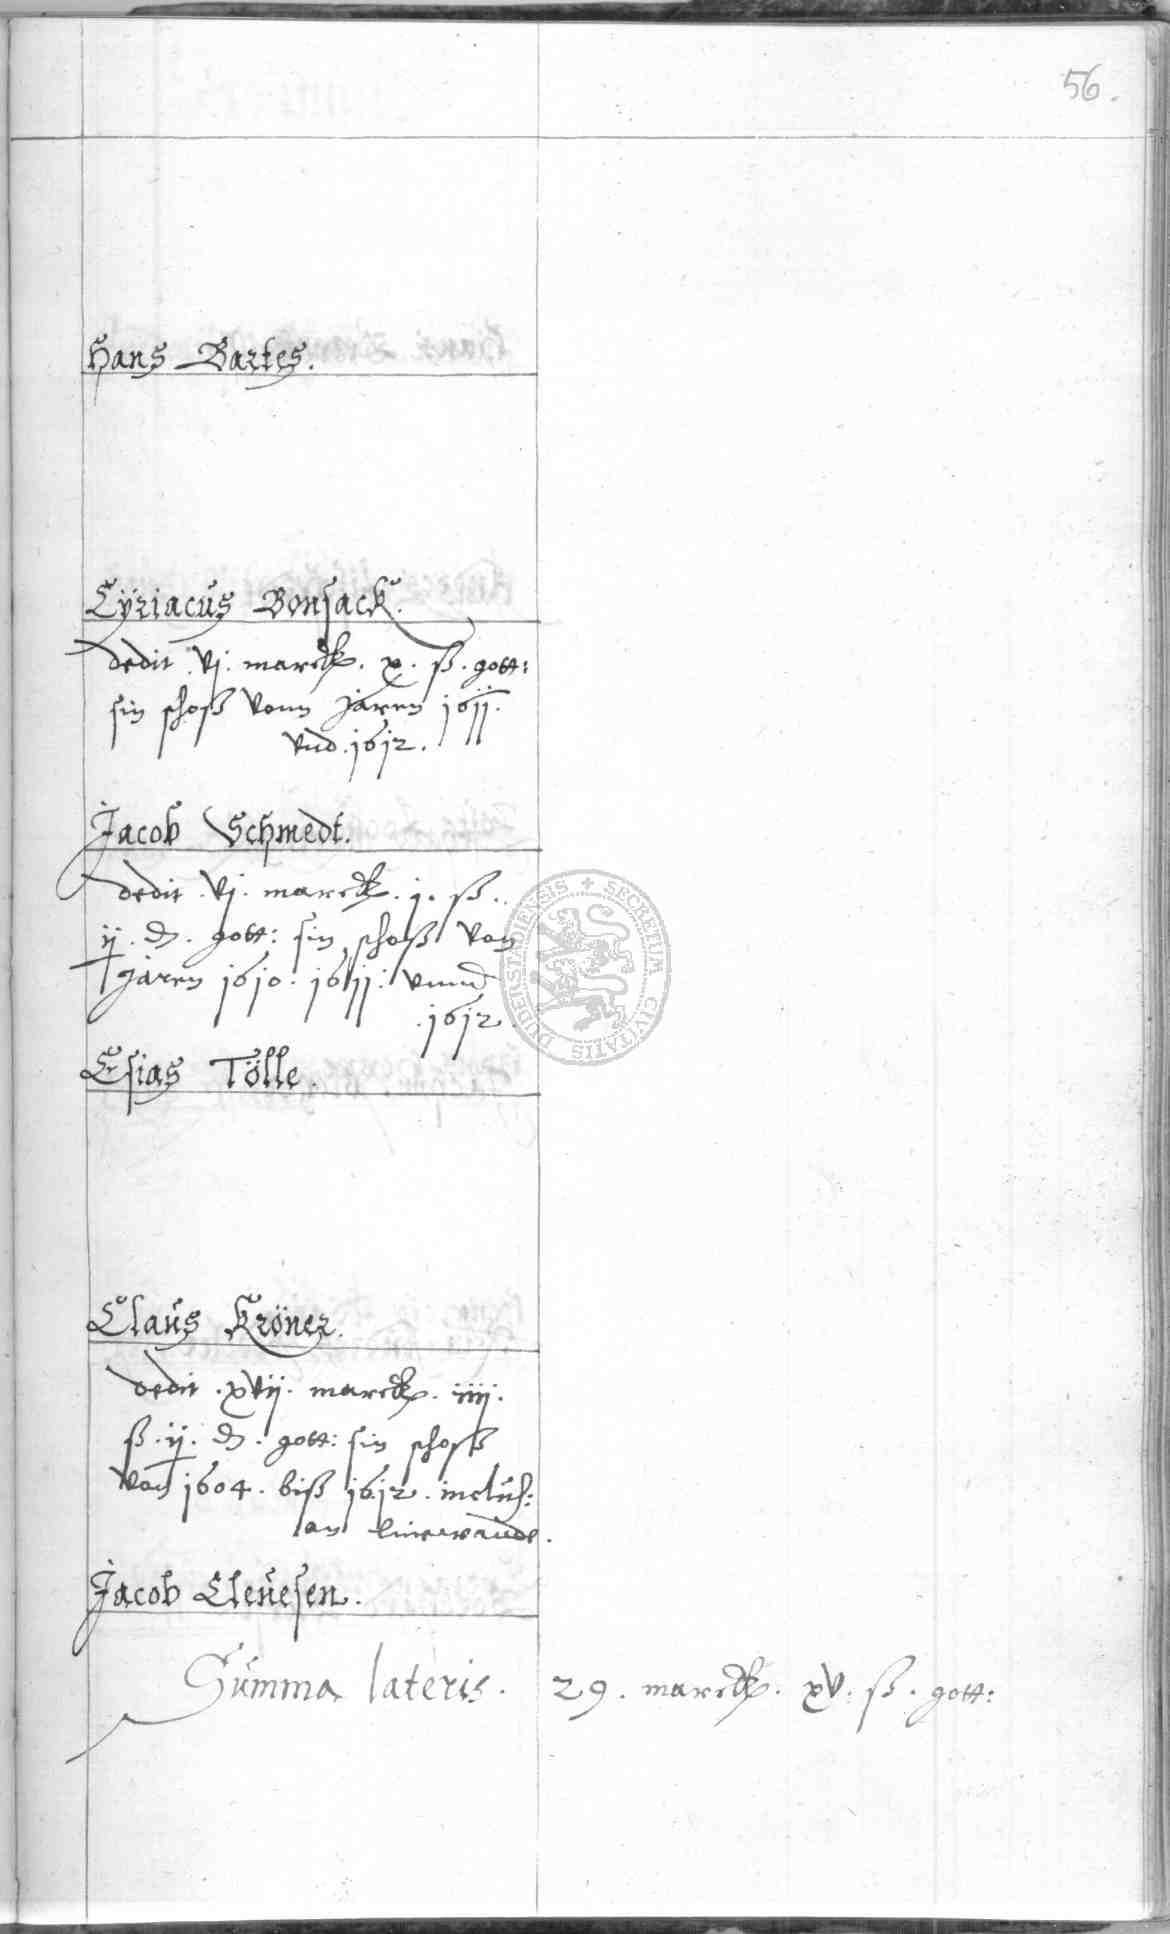 56.
Hans Bartes.
Cÿriacus Bonsack.
dedit . vj . marck . x . ß . gott:
sin schoß vonn jaren 1611.
vnd . 1612.
Jacob Schmedt.
dedit . vj . marck . j . ß .
ij . d . gott: sin schoß von
jaren 1610 . 1611 : vnnd
. 1612 .
Esias Tölle .
Claus Kröner.
dedit . xvij . marck . iiij .
ß . ij . d . gott: sin schoß
von 1604 . biß 1612 . inclus:
an linewande .
Jacob Cleuesen .
Summa lateris . 29 . marck . xv . ß . gott:
SECRETUM CIVITATIS DUDERSTADIENSIS